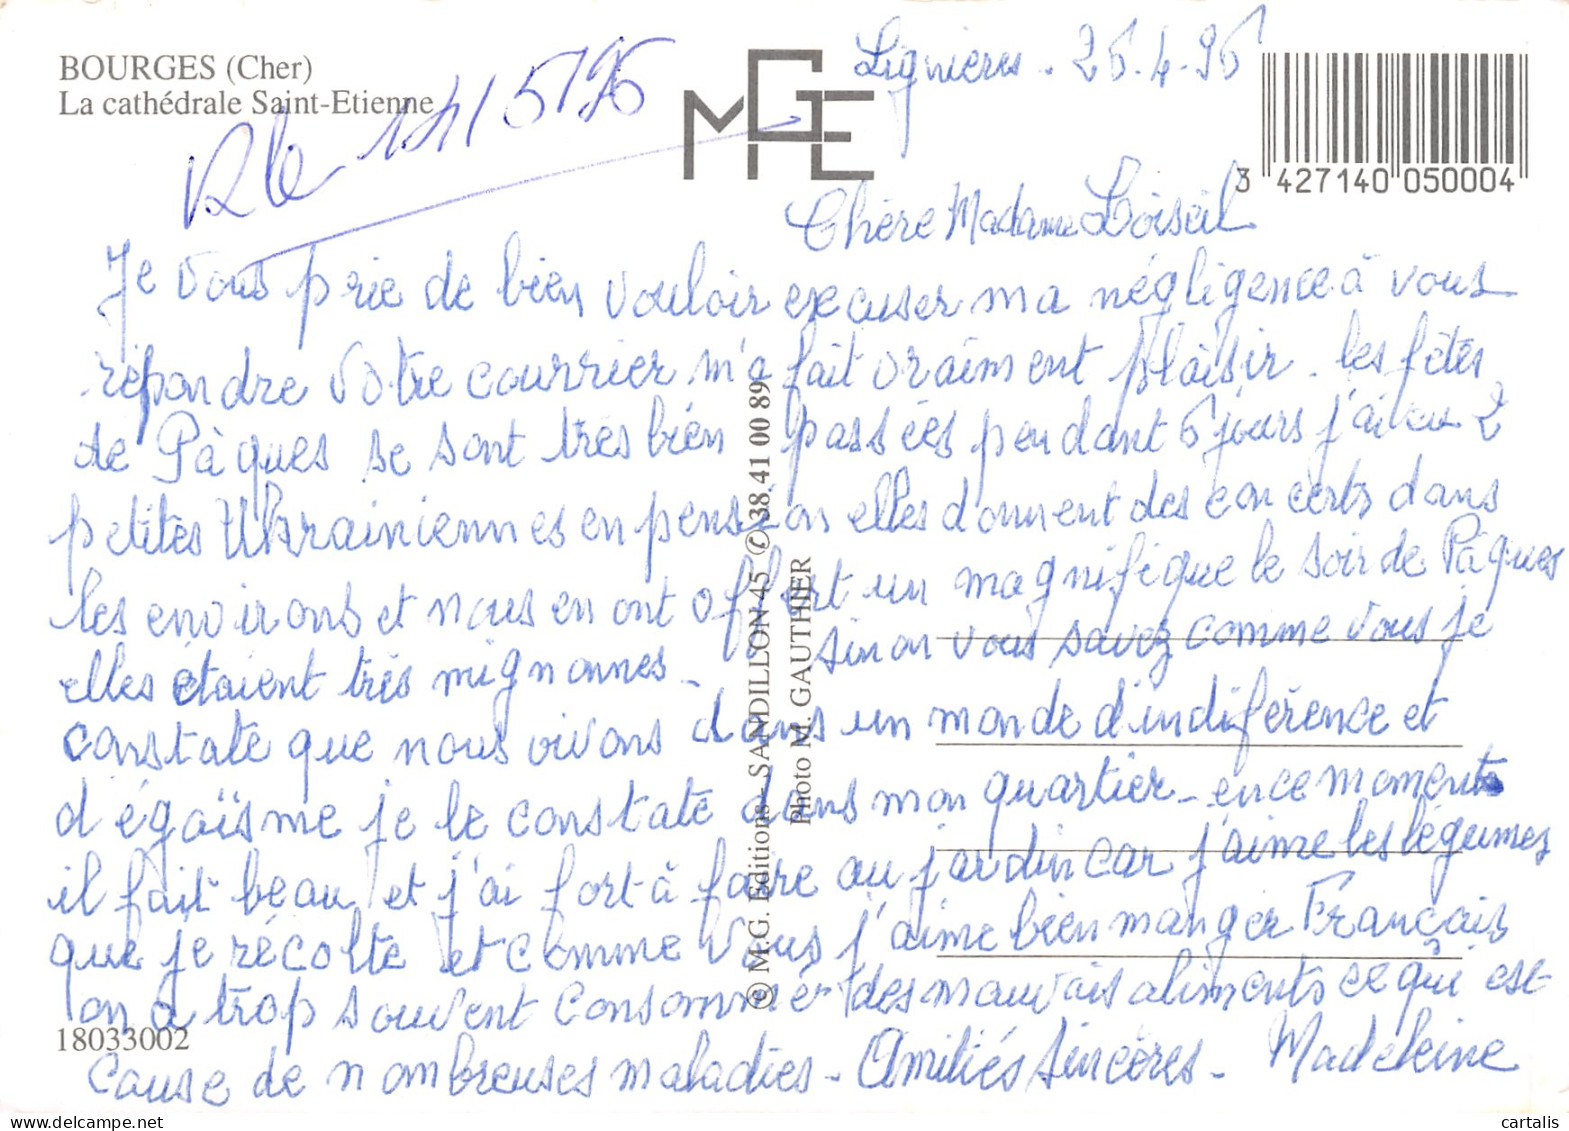 BOURGES (Cher)
La cathédrale Saint-Etienne
Rle 14/5/96
MGE
Lignières - 26.4.96
3 427140 050004
Chère Madame Loiseil
Je vous prie de bien vouloir excuser ma négligence à vous
répondre votre courrier m'a fait vraiment plaisir. les fêtes
de Pâques se sont très bien passées pendant 6 jours j'ai eu 2
petites Ukrainiennes en pension elles donnent des concerts dans
les environs et nous en ont offert un magnifique le soir de Pâques
elles étaient très mignonnes - sinon vous savez comme vous je
constate que nous vivons dans un monde d'indiférence et
d'égoïsme je le constate dans mon quartier - en ce moment
il fait beau et j'ai fort à faire au jardin car j'aime les légumes
que je récolte et comme vous j'aime bien manger Français
on a trop souvent consommé des mauvais aliments ce qui est
cause de nombreuses maladies - Amitiés sincères - Madeleine
18033002
© M.G. Editions - SANDILLON 45 ✆ 38.41 00 89
Photo M. GAUTHIER
cartalis
www.delcampe.net